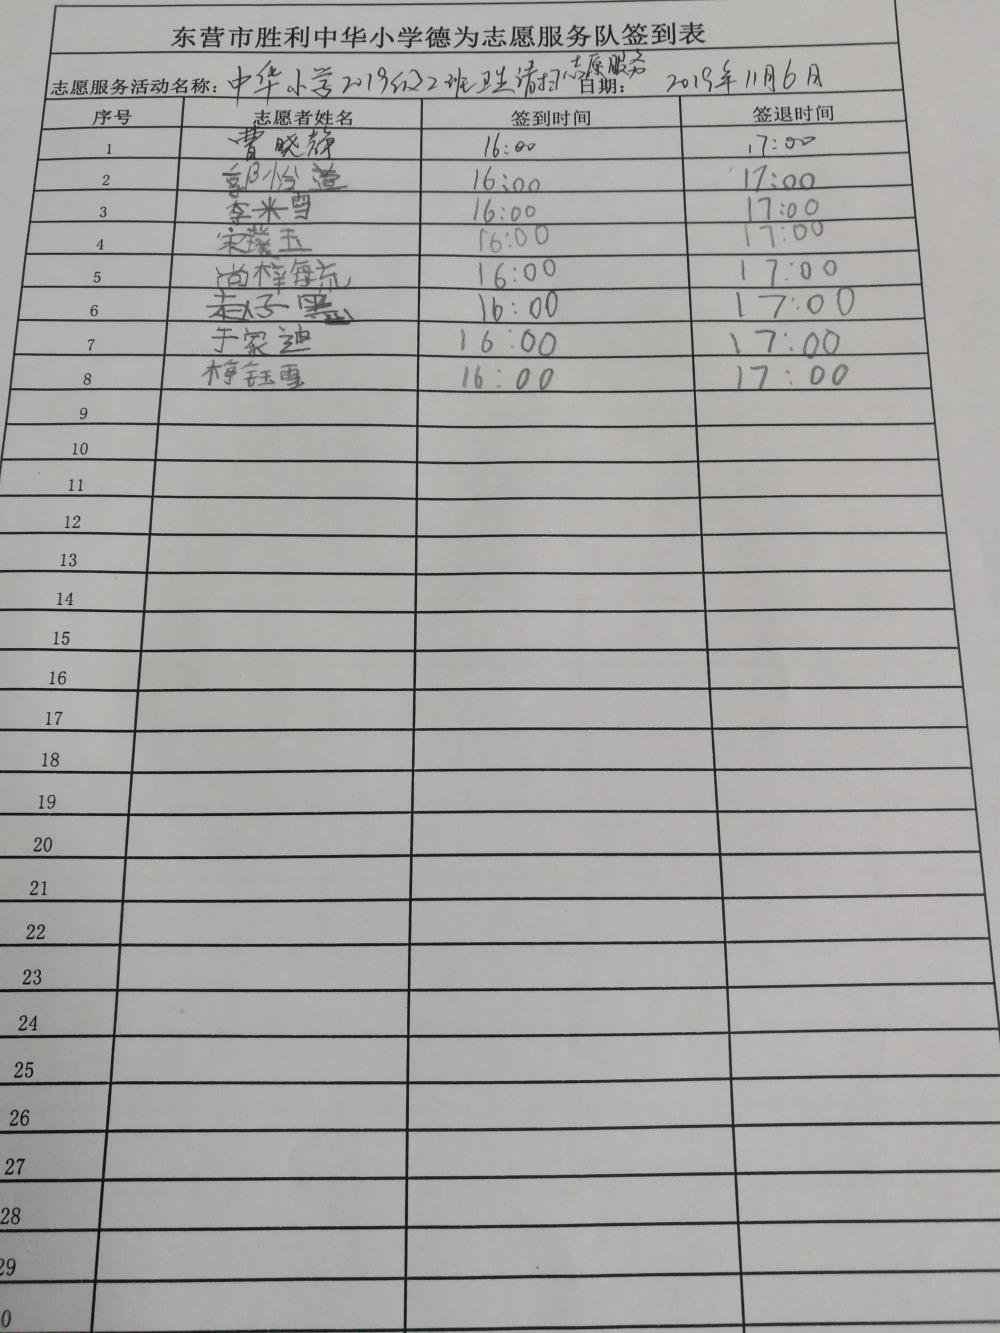 东营市胜利中华小学德为志愿服务队签到表
志愿服务活动名称：中华小学2019级2班卫生清扫志愿服务 日期： 2019年11月6日
序号 志愿者姓名 签到时间 签退时间
1 曹晓静 16:00 17:00
2 郭怡萱 16:00 17:00
3 李米雪 16:00 17:00
4 宋璞玉 16:00 17:00
5 尚梓毓 16:00 17:00
6 16:00 17:00
7 于家迪 16:00 17:00
8 钰雪 16:00 17:00
9
10
11
12
13
14
15
16
17
18
19
20
21
22
23
24
25
26
27
28
29
0